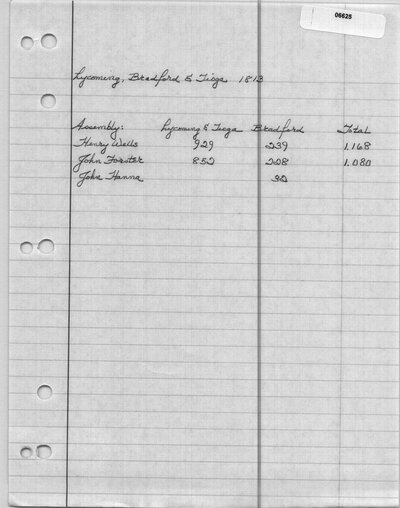 06625
Lycoming, Bradford & Tioga 1813
Assembly: Lycoming & Tioga Bradford Total
Henry Wells 929 239 1,168
John Forster 852 228 1,080
John Hanna 32